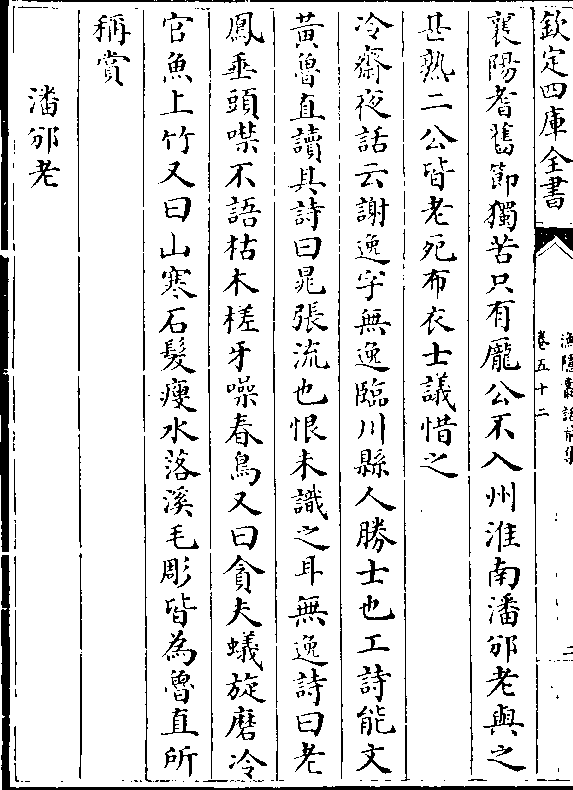 欽定四庫全書
漁隱叢話前集
卷五十二
二
襄陽耆舊節獨苦只有龐公不入州淮南潘邠老與之
甚熟二公皆老死布衣士議惜之
冷齋夜話云謝逸字無逸臨川縣人勝士也工詩能文
黃魯直讀其詩曰晁張流也恨未識之耳無逸詩曰老
鳳垂頭噤不語枯木槎牙噪春鳥又曰貪夫蟻旋磨冷
官魚上竹又曰山寒石髮瘦水落溪毛彫皆為魯直所
稱賞
潘邠老